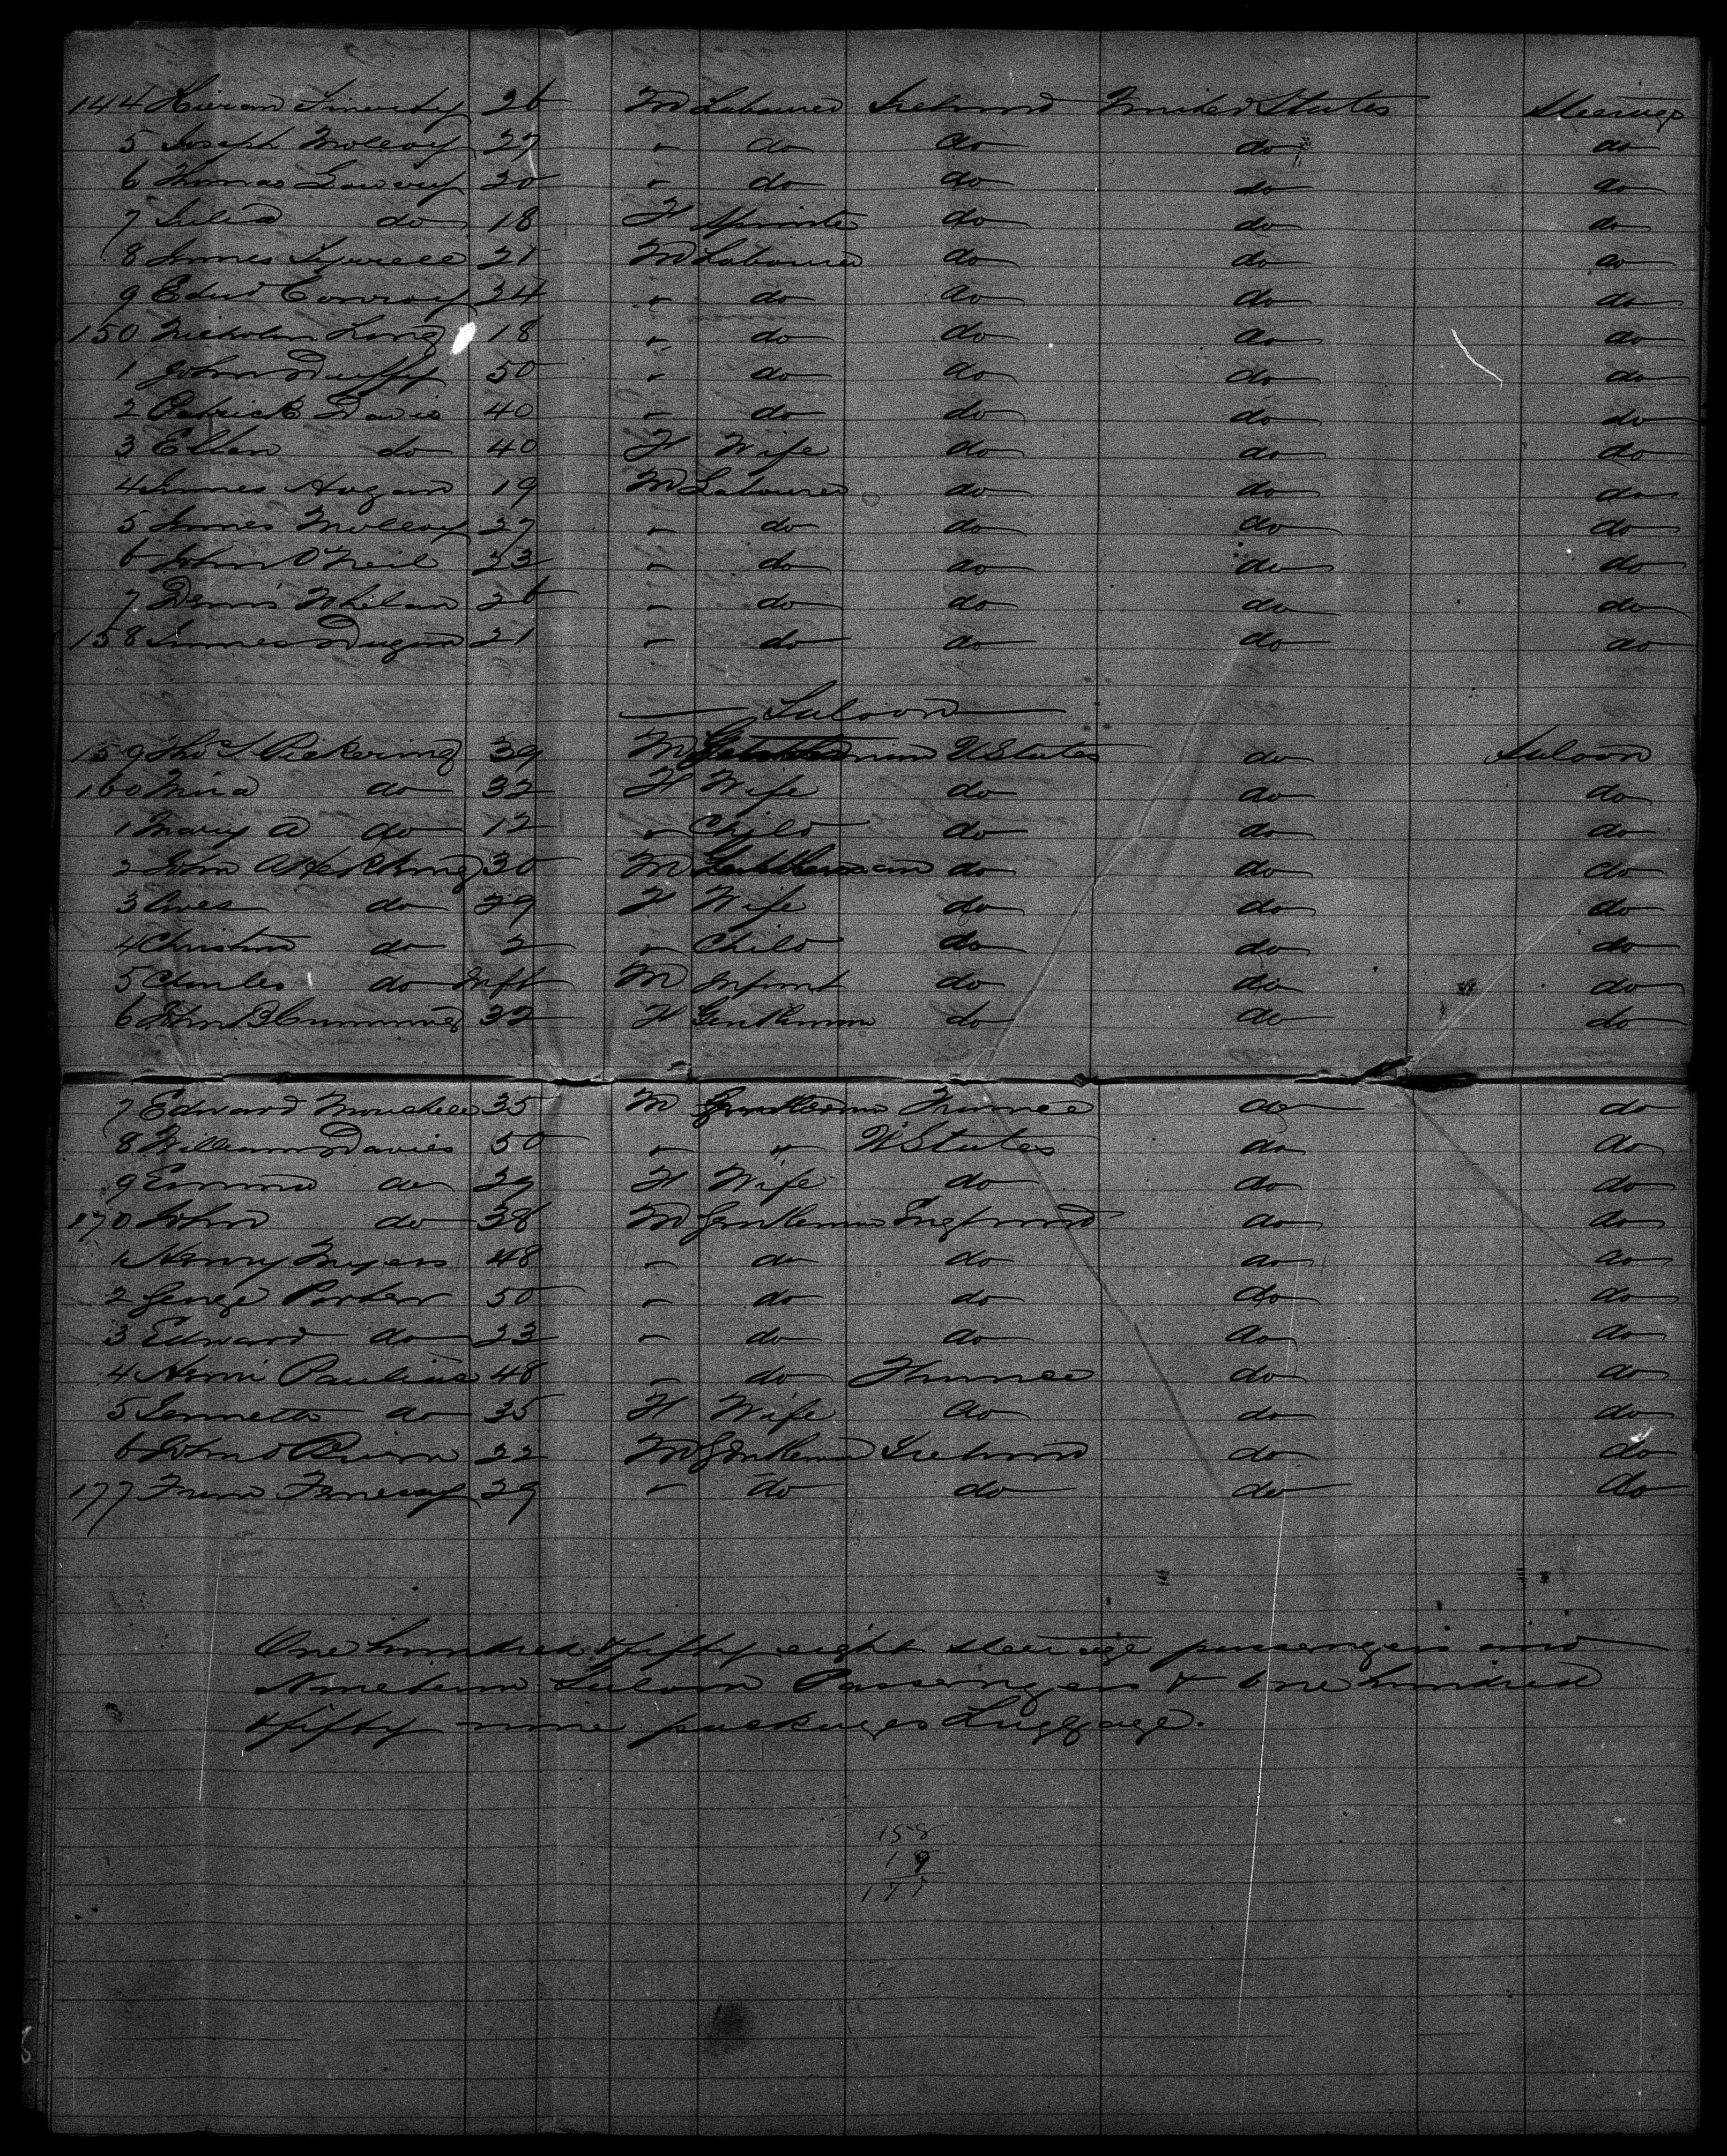 144 26 M Labourer Ireland United States Steerage
5 Joseph Molloy 27 " do do do do
6 Thomas 20 " do do do do
7 Julia do 18 F Spinster do do do
8 James Tyrrell 21 M Labourer do do do
9 Edwd Conroy 24 " do do do do
150 Nicholas Long 18 " do do do do
1 John Duffy 50 " do do do do
2 Patrick Davis 40 " do do do do
3 Ellen do 40 F Wife do do do
4 James Hogan 19 M Labourer do do do
5 James Molloy 27 " do do do do
6 John O'Neil 23 " do do do do
7 Dennis Whelan 26 " do do do do
158 James Dugan 21 " do do do do
Saloon
159 Tho S Pickering 39 M Gentleman U States do Saloon
160 Mina do 32 F Wife do do do
1 Mary A do 12 " Child do do do
2 John A 30 M Gentleman do do do
3 do 29 F Wife do do do
4 Christina do 2 " Child do do do
5 Charles do Inft M Infant do do do
6 John B Cummings 32 F Gentleman do do do
7 Edward 35 M Gentleman France do do
8 William Davies 50 " " U States do do
9 Emma do 29 F Wife do do do
170 John do 38 M Gentleman England do do
1 Henry Myers 48 " do do do do
2 George Porter 50 " do do do do
3 Edward do 23 " do do do do
4 Henri Pauline 48 " do France do do
5 Jennette do 35 F Wife do do do
6 John O'Beirn 22 M Gentleman Ireland do do
177 29 " do do do do
One hundred & fifty eight steerage passengers and
Nineteen Saloon Passengers & One hundred
& fifty nine packages Luggage.
158
19
177